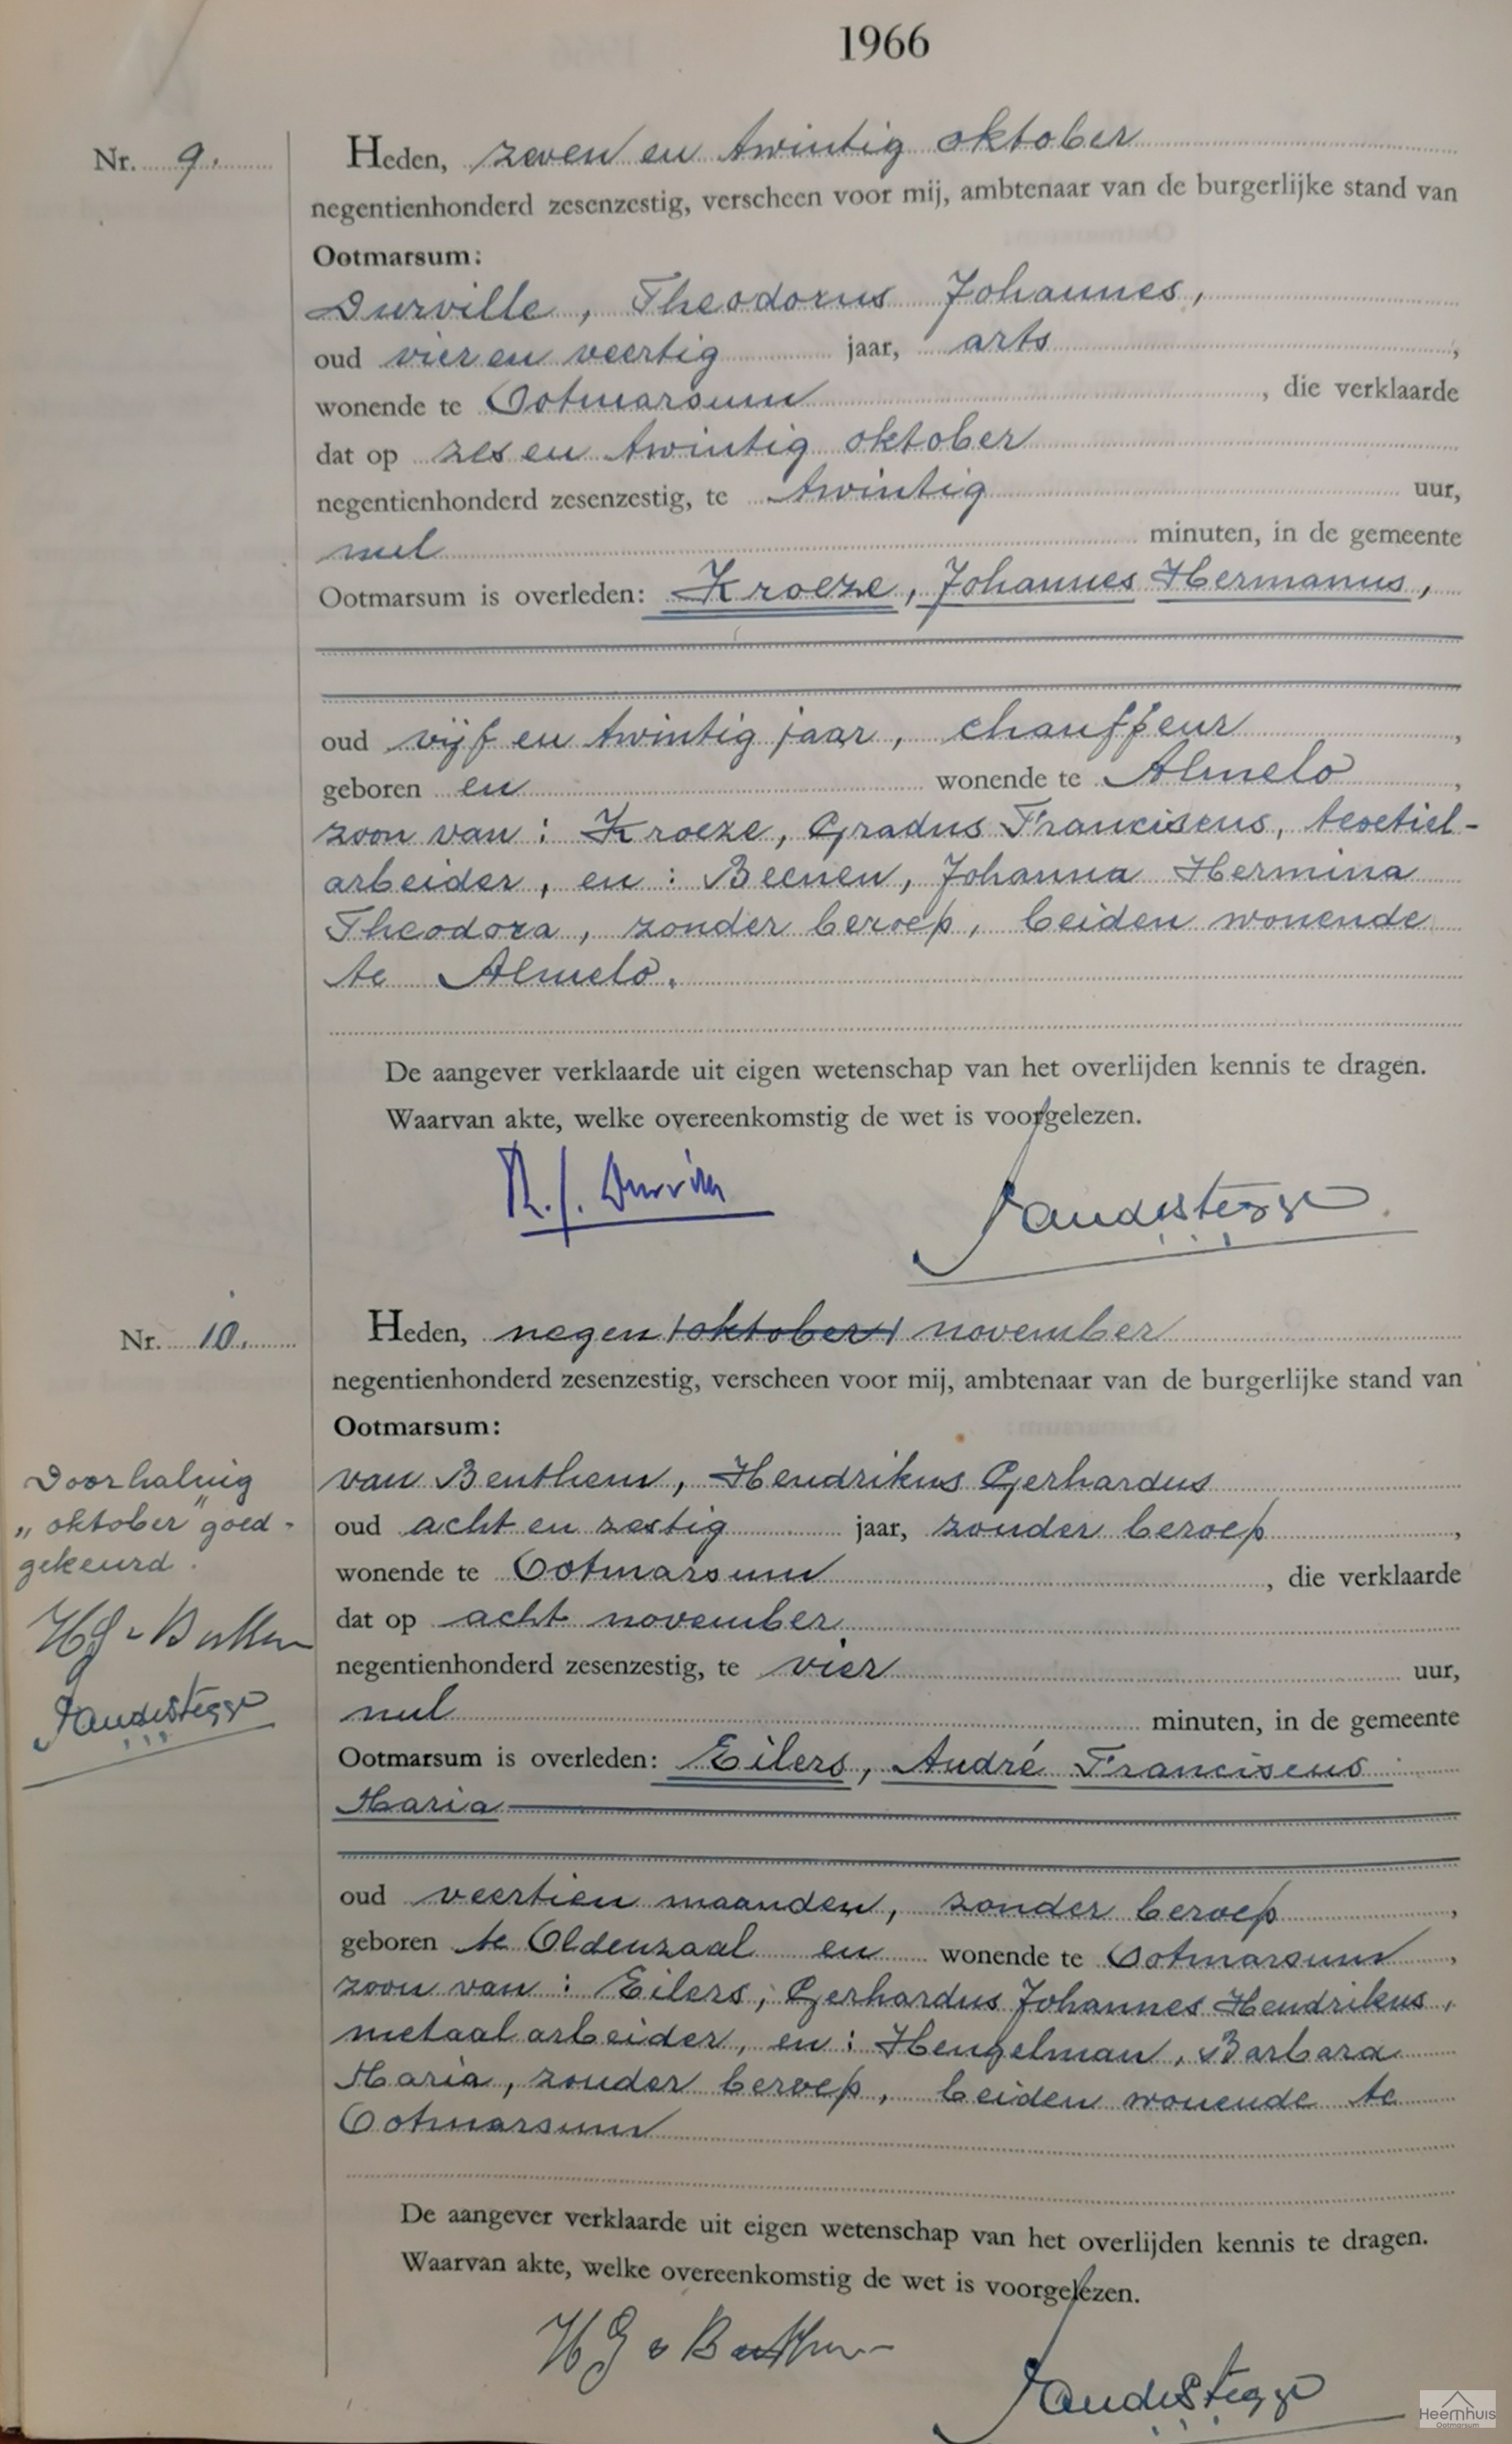 1966
Nr. 9.
Heden, zeven en twintig oktober
negentienhonderd zesenzestig, verscheen voor mij, ambtenaar van de burgerlijke stand van
Ootmarsum:
Durville, Theodorus Johannes,
oud vier en veertig jaar, arts,
wonende te Ootmarsum, die verklaarde
dat op zes en twintig oktober
negentienhonderd zesenzestig, te twintig uur,
nul minuten, in de gemeente
Ootmarsum is overleden: Kroeze, Johannes Hermanus,
oud vijf en twintig jaar, chauffeur,
geboren en wonende te Almelo,
zoon van: Kroeze, Gradus Franciscus, textiel-
arbeider, en: Beenen, Johanna Hermina
Theodora, zonder beroep, beiden wonende
te Almelo.
De aangever verklaarde uit eigen wetenschap van het overlijden kennis te dragen.
Waarvan akte, welke overeenkomstig de wet is voorgelezen.
Nr. 10.
Heden, negen oktober november
negentienhonderd zesenzestig, verscheen voor mij, ambtenaar van de burgerlijke stand van
Ootmarsum:
Doorhaling
"oktober" goed-
gekeurd.
van Benthem, Hendrikus Gerhardus
oud acht en zestig jaar, zonder beroep,
wonende te Ootmarsum, die verklaarde
dat op acht november
negentienhonderd zesenzestig, te vier uur,
nul minuten, in de gemeente
Ootmarsum is overleden: Eilers, André Franciscus
Maria
oud veertien maanden, zonder beroep,
geboren te Oldenzaal en wonende te Ootmarsum,
zoon van: Eilers, Gerhardus Johannes Hendrikus,
metaalarbeider, en: Hengelman, Barbara
Maria, zonder beroep, beiden wonende te
Ootmarsum
De aangever verklaarde uit eigen wetenschap van het overlijden kennis te dragen.
Waarvan akte, welke overeenkomstig de wet is voorgelezen.
Heemhuis
Ootmarsum